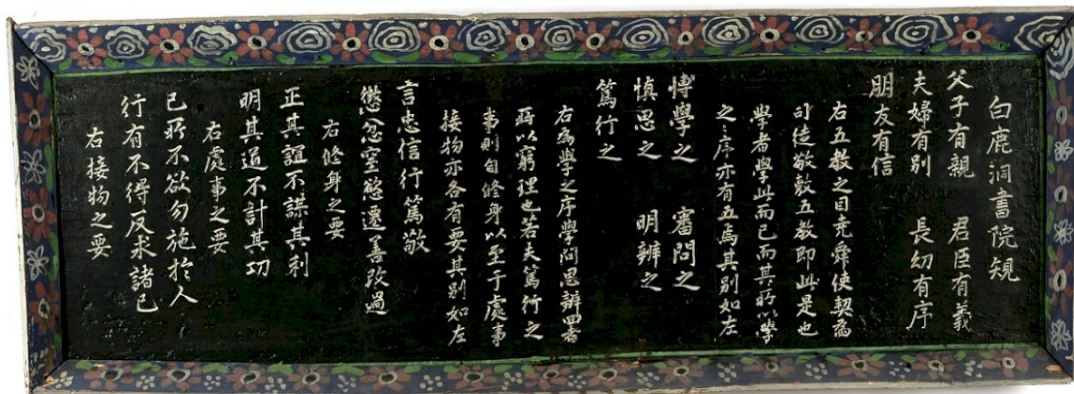 白鹿洞書院䂓
父子有親 君臣有義
夫婦有別 長幼有序
朋友有信
右五教之目堯舜使契為
司徒敬敷五教即此是也
學者學此而已而其所以學
之〻序亦有五焉其別如左
博學之 審問之
慎思之 明辨之
篤行之
右為學之序學問思辨四者
所以窮理也若夫篤行之
事則自修身以至于處事
接物亦各有要其別如左
言忠信行篤敬
懲忿窒慾遷善改過
右修身之要
正其誼不謀其利
明其道不計其功
右處事之要
己所不欲勿施於人
行有不得反求諸己
右接物之要